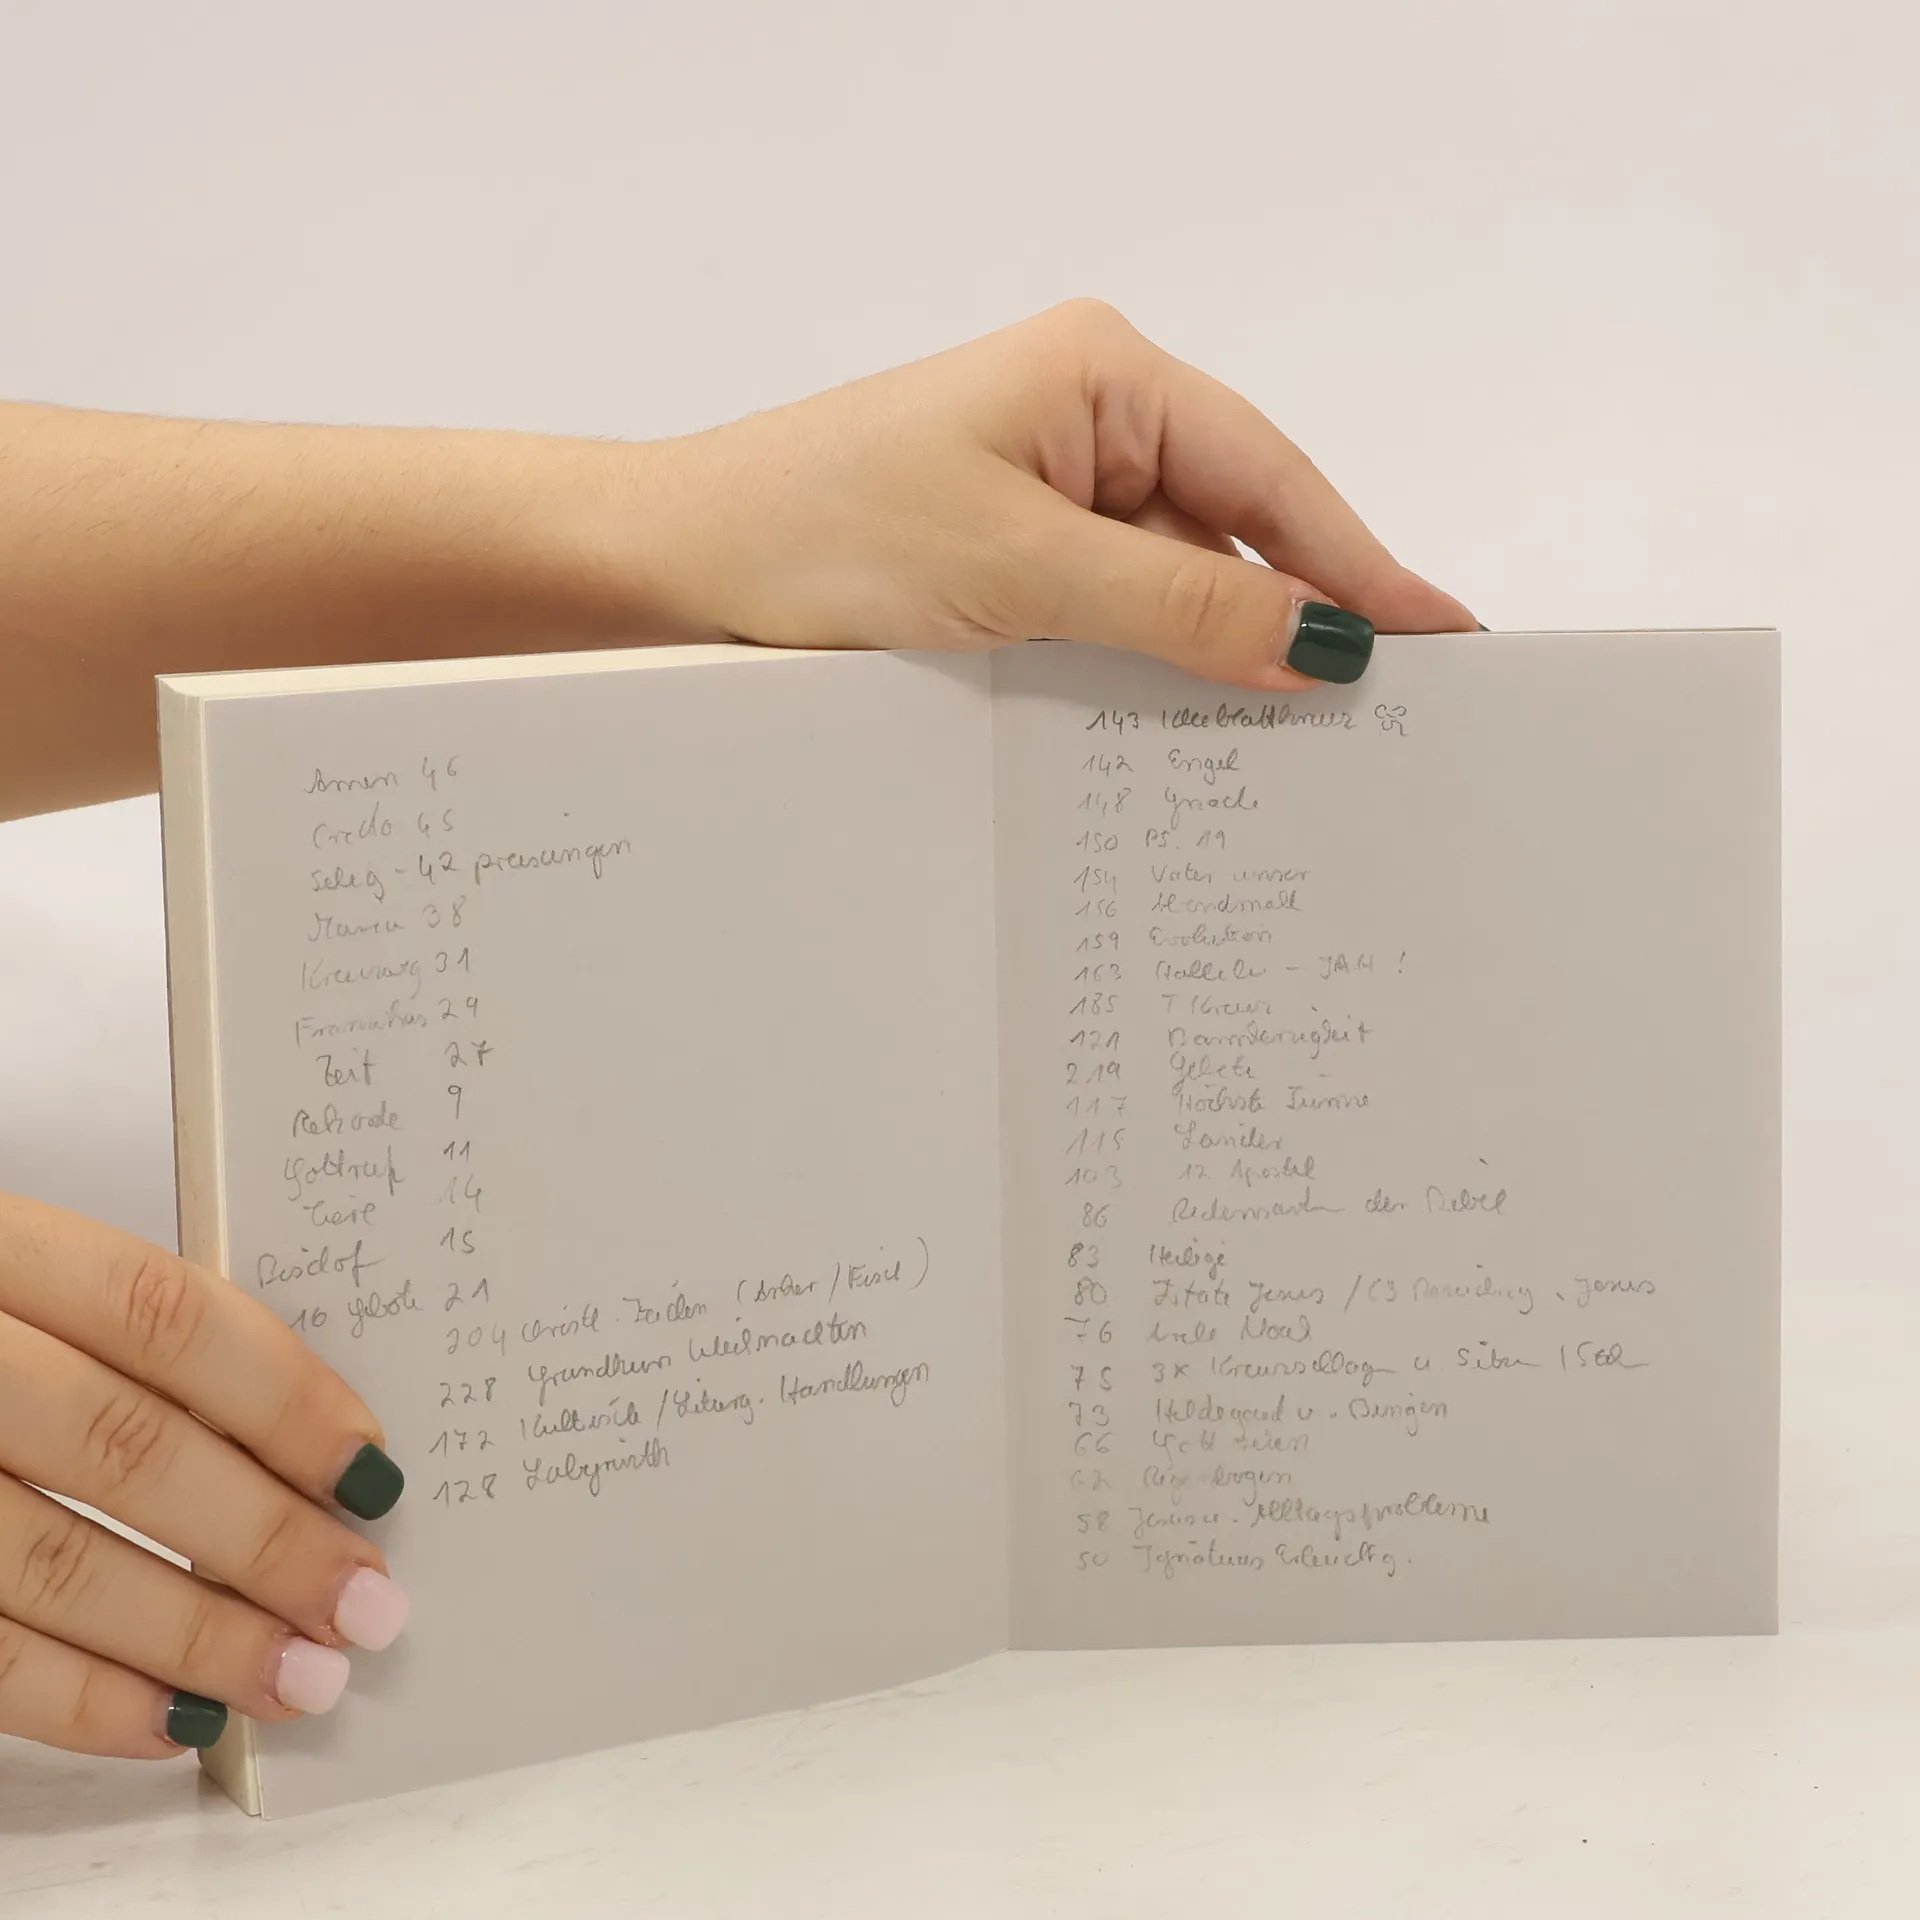 Amen 46
Credo 45
Selig - 42 preisungen
Maria 38
Kreuzweg 31
Franziskus 29
Zeit 27
Rekorde 9
11
Tiere 14
Bischof 15
10 Gebote 21
204 Christl. Zeichen (Anker / Fisch)
228 Weihnachten
172 Kultische / Liturg. Handlungen
128 Labyrinth
143 Kleeblattkreuz
142 Engel
148 Gnade
150 Ps. 19
154 Vater unser
156 Abendmahl
159 Evolution
163 Hallelu - JAH !
185 T Kreuz
121 Barmherzigkeit
219 Gebete
117 Höchste
115 Länder
103 12 Apostel
86 Redensarten der Bibel
83 Heilige
80 Zitate Jesus / Jesus
76 Arche Noah
75 3x
73 Hildegard v. Bingen
66 Gott
62 Regenbogen
58 Jesus u. Alltagsprobleme
50 Ignatius Erleuchtg.